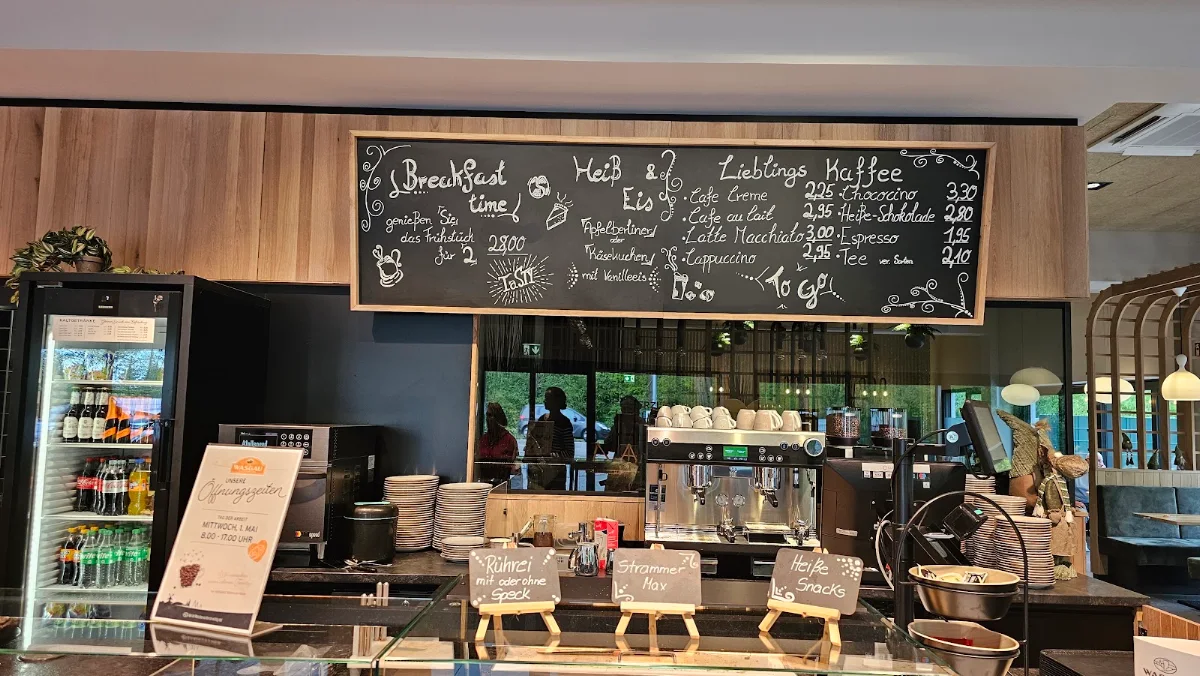 Breakfast
time
genießen Sie
das Frühstück
für 2 28,00
TASTY
Heiß &
Eis
Apfelberliner
oder
Käsekuchen
mit Vanilleeis
Lieblings Kaffee
Cafe Creme 2,25
Cafe au lait 2,95
Latte Macchiato 3,00
Cappuccino 2,95
Chococino 3,30
Heiße-Schokolade 2,80
Espresso 1,95
Tee ver. Sorten 2,10
To go
KALTGETRÄNKE
WASGAU
UNSERE
Öffnungszeiten
TAG DER ARBEIT
MITTWOCH, 1. MAI
8:00 - 17:00 UHR
Rührei
mit oder ohne
Speck
Strammer
Max
Heiße
Snacks